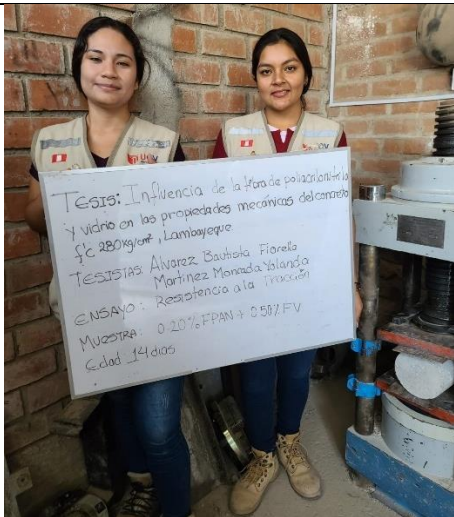 TESIS: Influencia de la fibra de poliacrilonitrilo
y vidrio en las propiedades mecánicas del concreto
f'c 280kg/cm², Lambayeque
TESISTAS: Alvarez Bautista Fiorella
Martinez Moncada Yolanda
ENSAYO: Resistencia a la Tracción
MUESTRA: 0.20% FPAN + 0.50% FV
Edad 14 dias